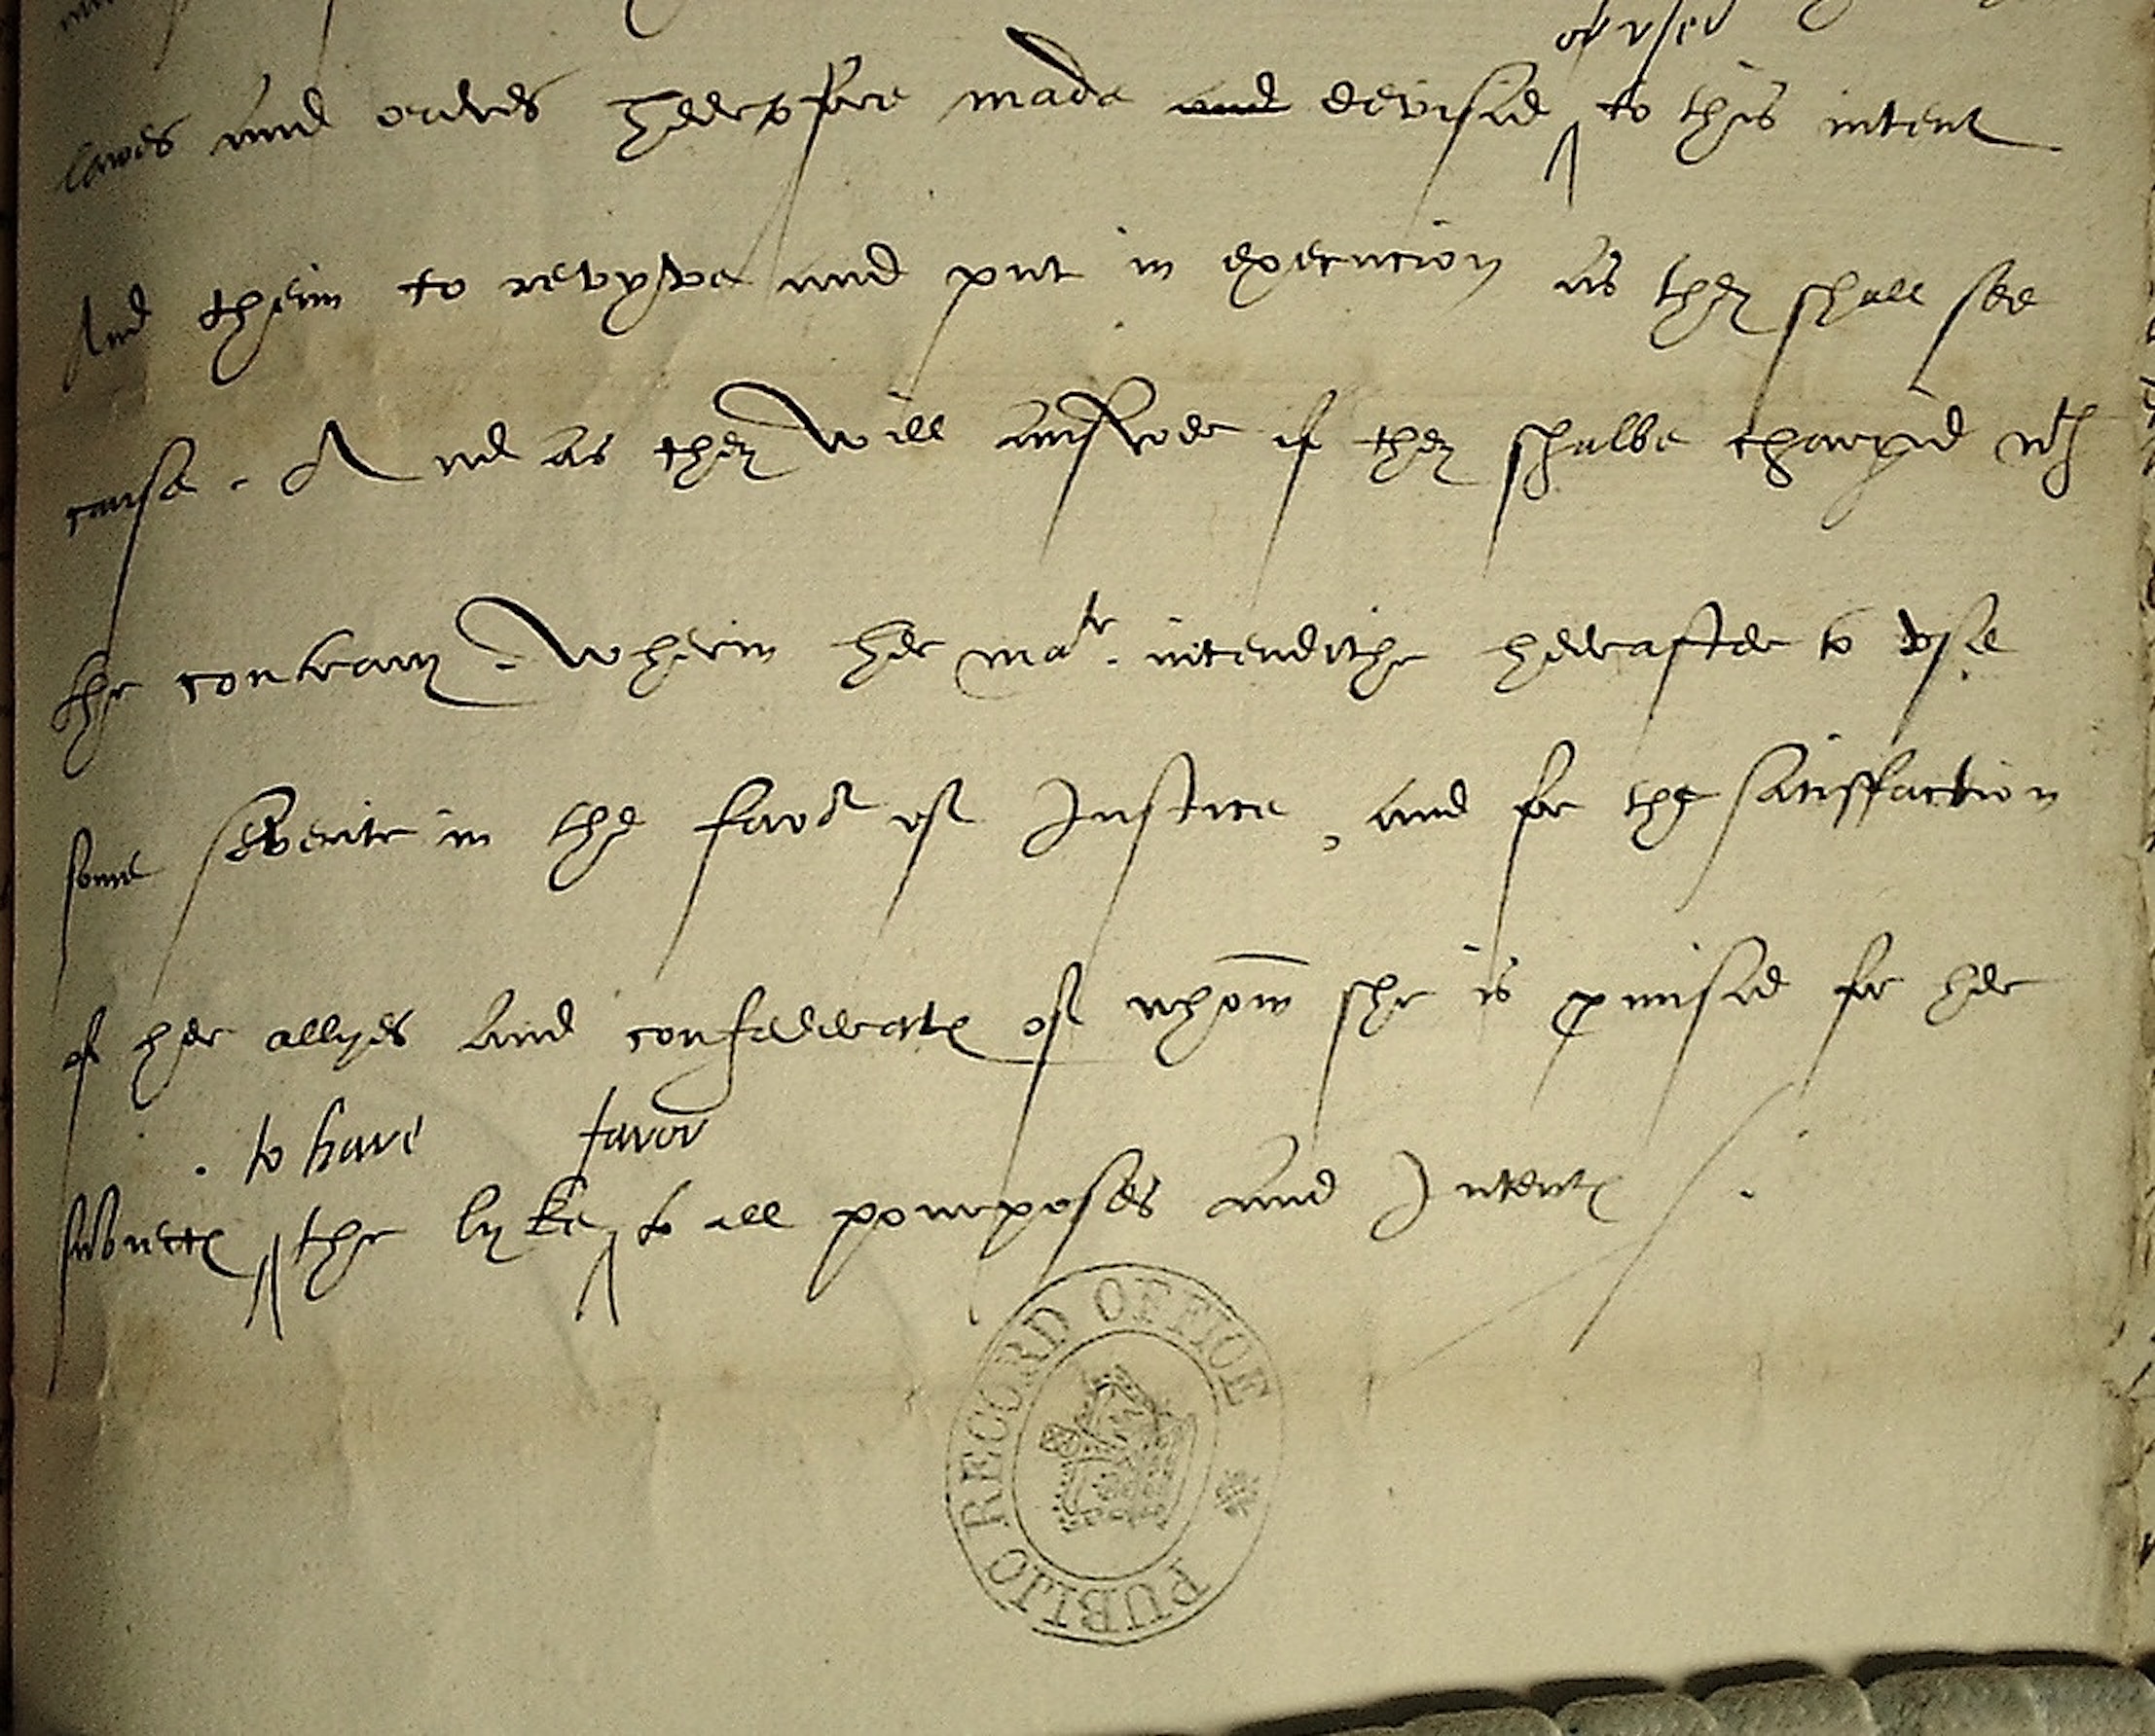 or vsed
lawes and ordres heretofore made and devised to this intent
And theim to revyve and put in execucion as they shall see
cause. And as they will answere if they shalbe charged wth
the contrary. Wherin her matie. intendithe hereafter to vse
some severite in the favor of Justice, and for the satisffaction
of her allyes and confederates of whom she is promised for her
to have favor
subiectes the lyke to all pourposes and Intentes.
PUBLIC RECORD OFFICE